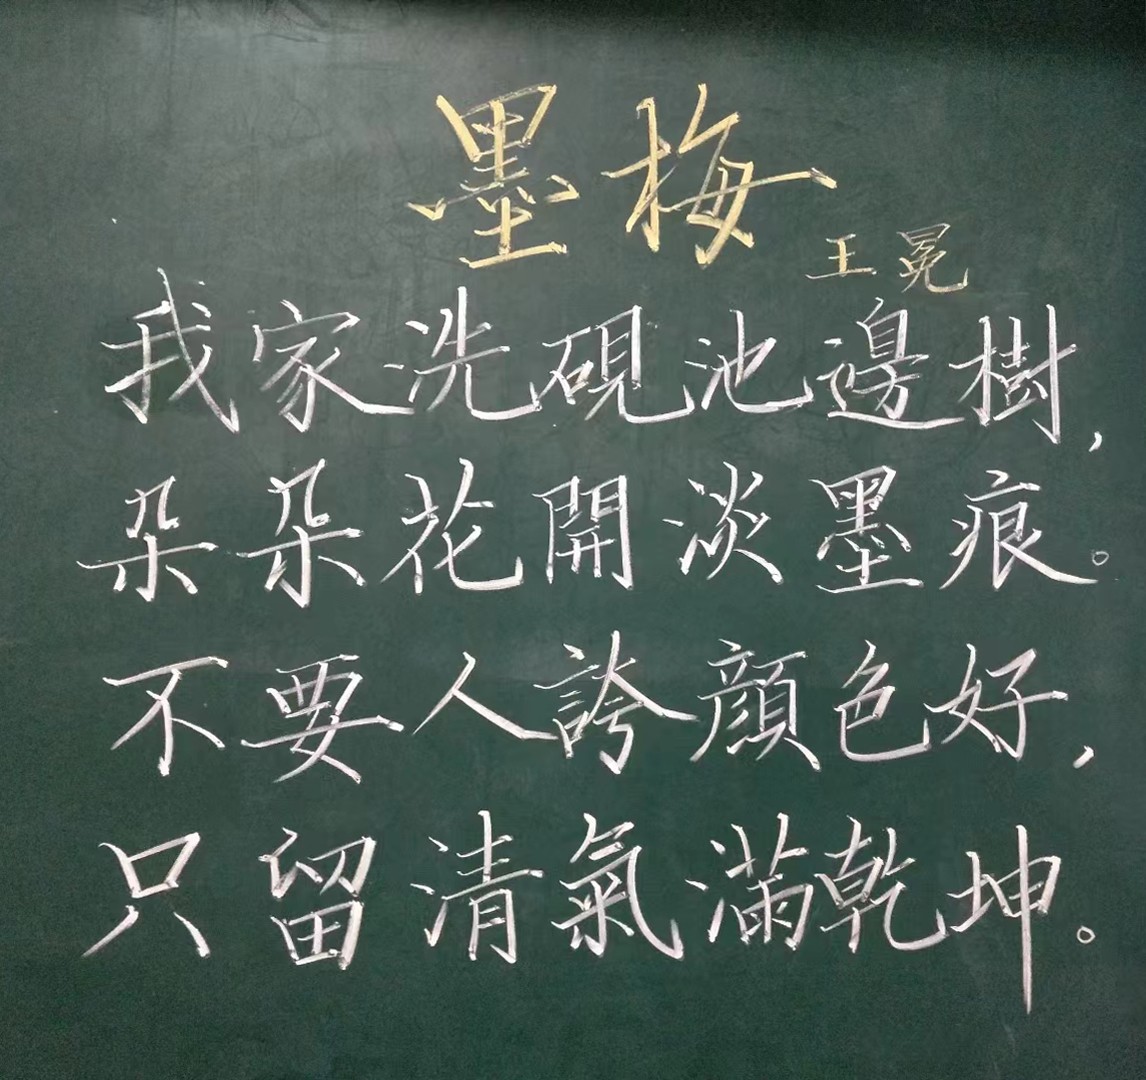 墨梅
王冕
我家洗硯池邊樹,
朵朵花開淡墨痕。
不要人誇顏色好,
只留清氣滿乾坤。